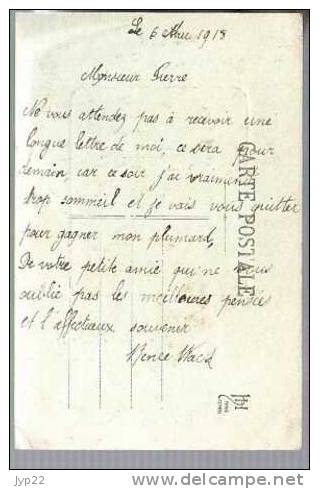 Le 6 1918
Monsieur Pierre
Ne vous attendez pas à recevoir une
longue lettre de moi, ce sera pour
demain car ce soir j'ai vraiment
trop sommeil et je vais vous quitter
pour gagner mon plumard,
De votre petite amie qui ne vous
oublie pas les meilleures pensées
et l'affectueux souvenir
Renée
CARTE POSTALE
jyp22
www.delcampe.net